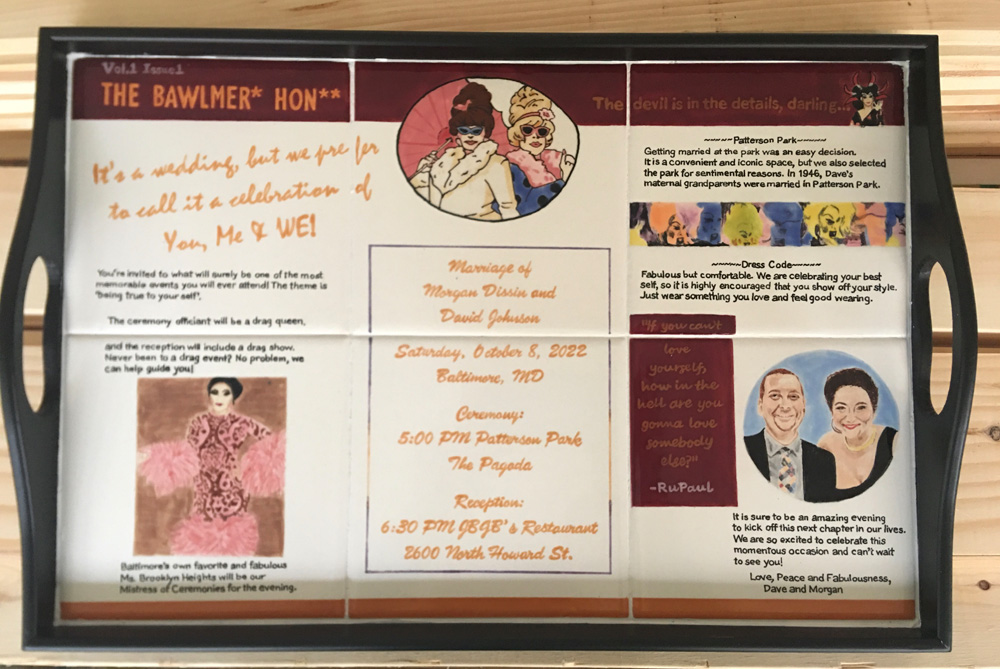 Vol.1 Issue1
THE BAWLMER* HON**
It's a wedding, but we prefer
to call it a celebration of
You, Me & WE!
You're invited to what will surely be one of the most
memorable events you will ever attend! The theme is
"being true to your self".
The ceremony officiant will be a drag queen,
and the reception will include a drag show.
Never been to a drag event? No problem, we
can help guide you!
Baltimore's own favorite and fabulous
Ms. Brooklyn Heights will be our
Mistress of Ceremonies for the evening.
Marriage of
Morgan Dissin and
David Johnson
Saturday, October 8, 2022
Baltimore, MD
Ceremony:
5:00 PM Patterson Park
The Pagoda
Reception:
6:30 PM JBGB's Restaurant
2600 North Howard St.
The devil is in the details, darling...
~~~~~Patterson Park~~~~~
Getting married at the park was an easy decision.
It is a convenient and iconic space, but we also selected
the park for sentimental reasons. In 1946, Dave's
maternal grandparents were married in Patterson Park.
~~~~~Dress Code~~~~~
Fabulous but comfortable. We are celebrating your best
self, so it is highly encouraged that you show off your style.
Just wear something you love and feel good wearing.
"If you can't
love
yourself,
how in the
hell are you
gonna love
somebody
else?"
-RuPaul
It is sure to be an amazing evening
to kick off this next chapter in our lives.
We are so excited to celebrate this
momentous occasion and can't wait
to see you!
Love, Peace and Fabulousness,
Dave and Morgan